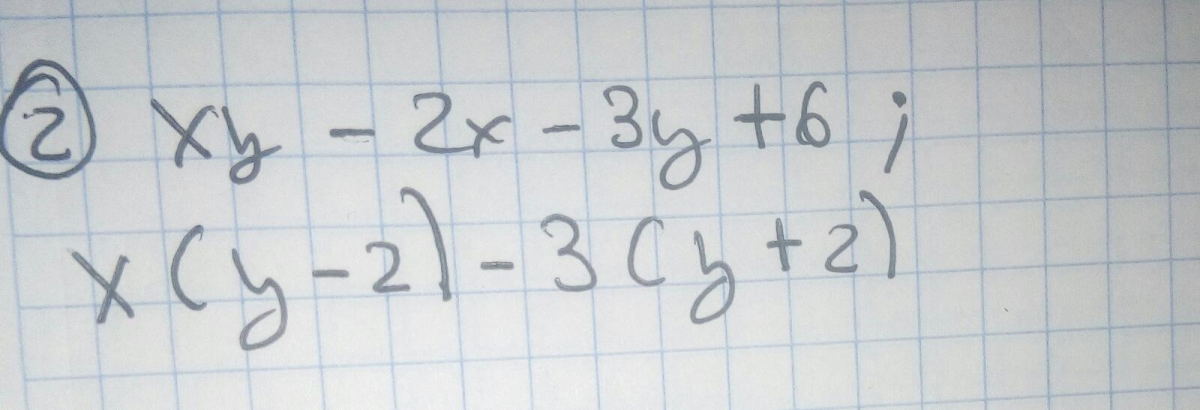 ② xy - 2x - 3y + 6 ;
x (y - 2) - 3 (y + 2)